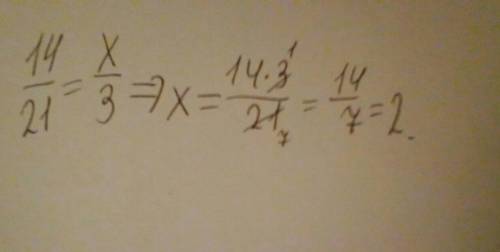 14/21 = x/3 => x = 14·3/21 = 14/7 = 2.